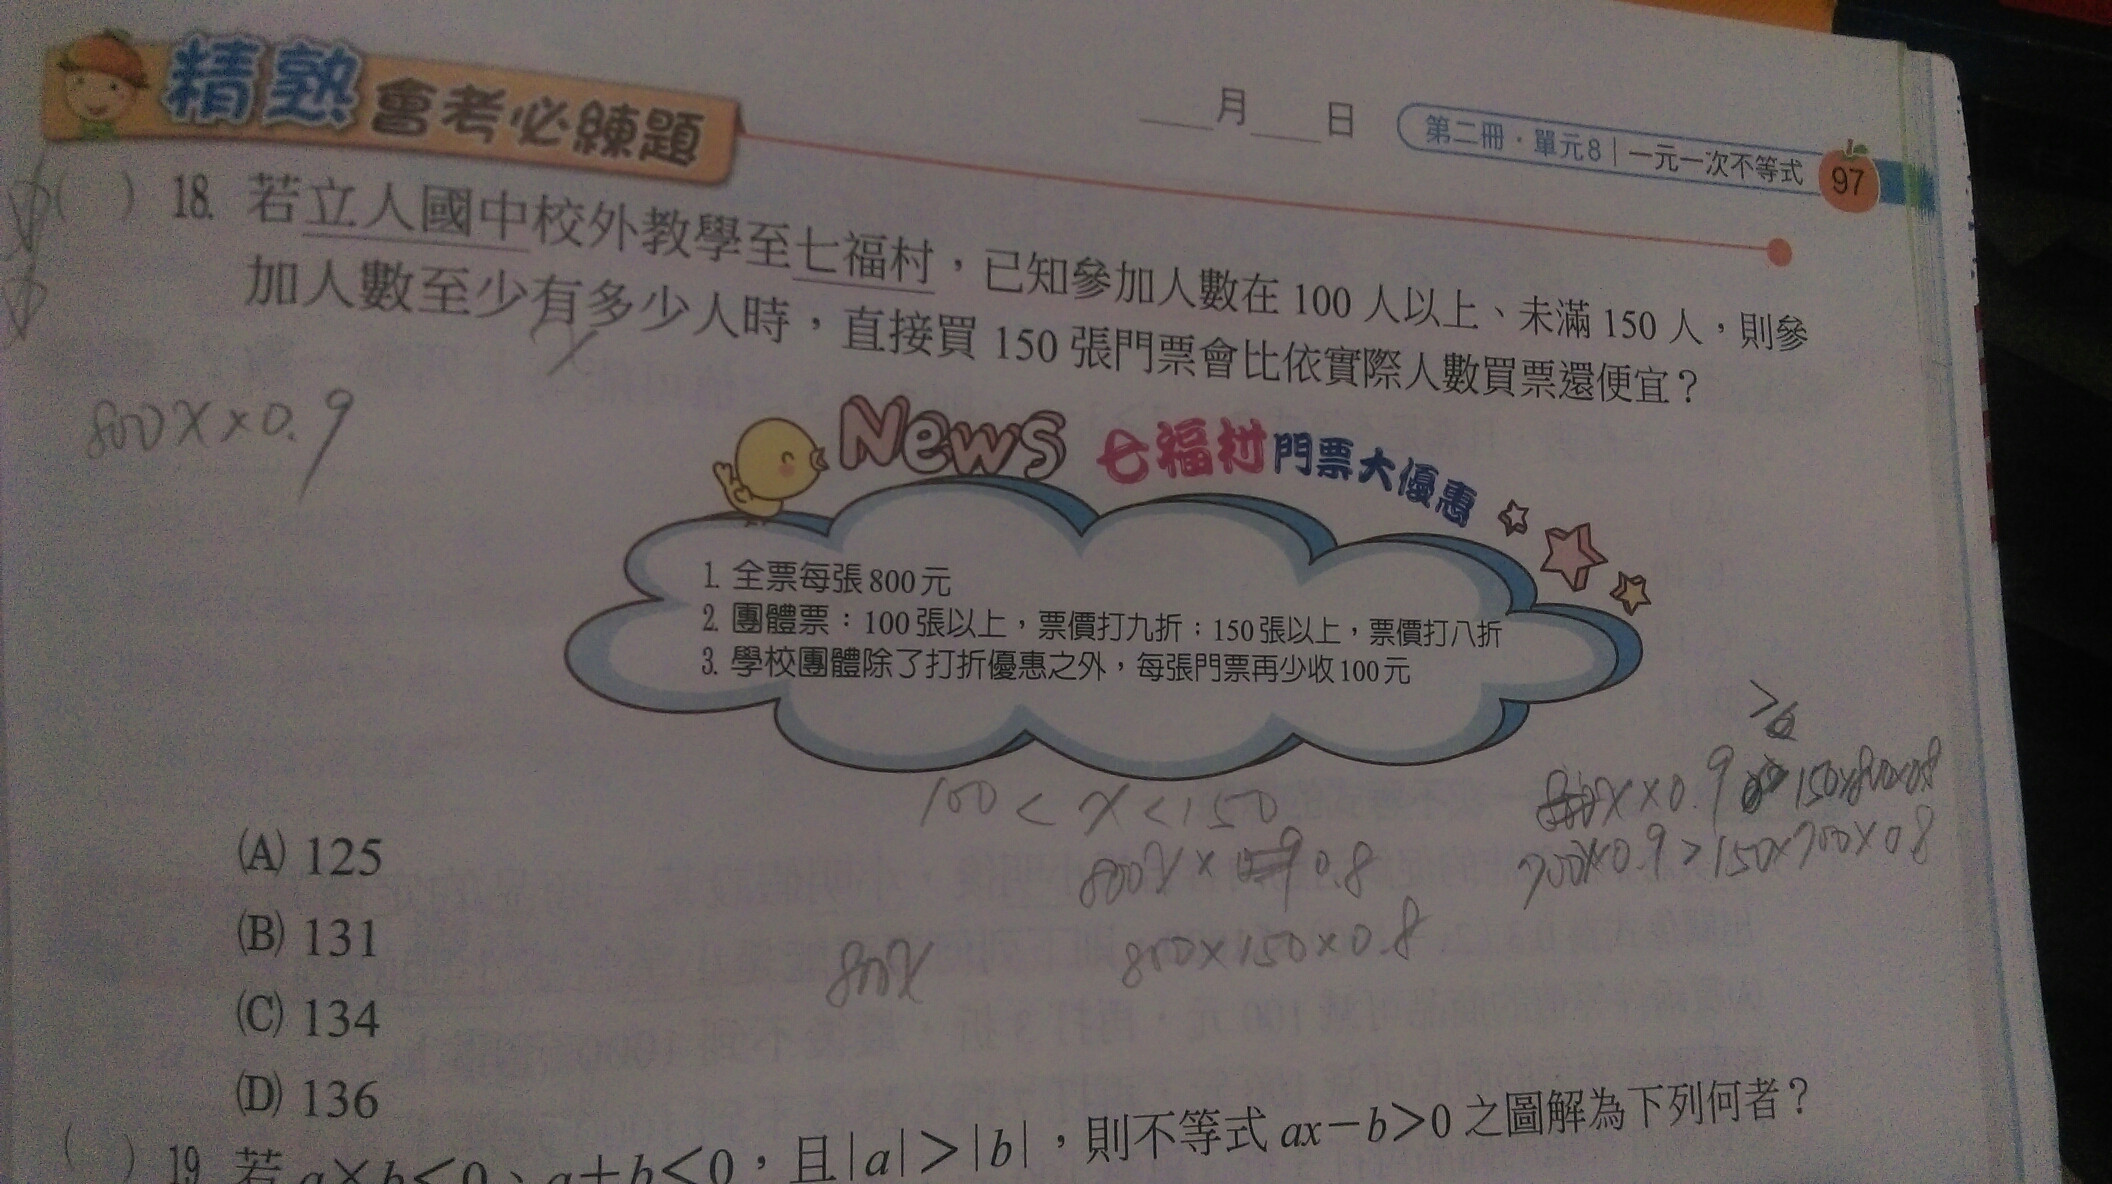 精熟會考必練題
___月___日
第二冊・單元8|一元一次不等式
97
( ) 18. 若立人國中校外教學至七福村，已知參加人數在 100 人以上、未滿 150 人，則參
加人數至少有多少人時，直接買 150 張門票會比依實際人數買票還便宜？
x
800x×0.9
News 七福村門票大優惠
1. 全票每張800元
2. 團體票：100張以上，票價打九折；150張以上，票價打八折
3. 學校團體除了打折優惠之外，每張門票再少收100元
100<x<150
x×0.9 150×800×0.8
800x× 0.8
700x×0.9>150×700×0.8
800x
800×150×0.8
(A) 125
(B) 131
(C) 134
(D) 136
( ) 19. 若 a×b<0、a+b<0，且|a|>|b|，則不等式 ax-b>0 之圖解為下列何者？